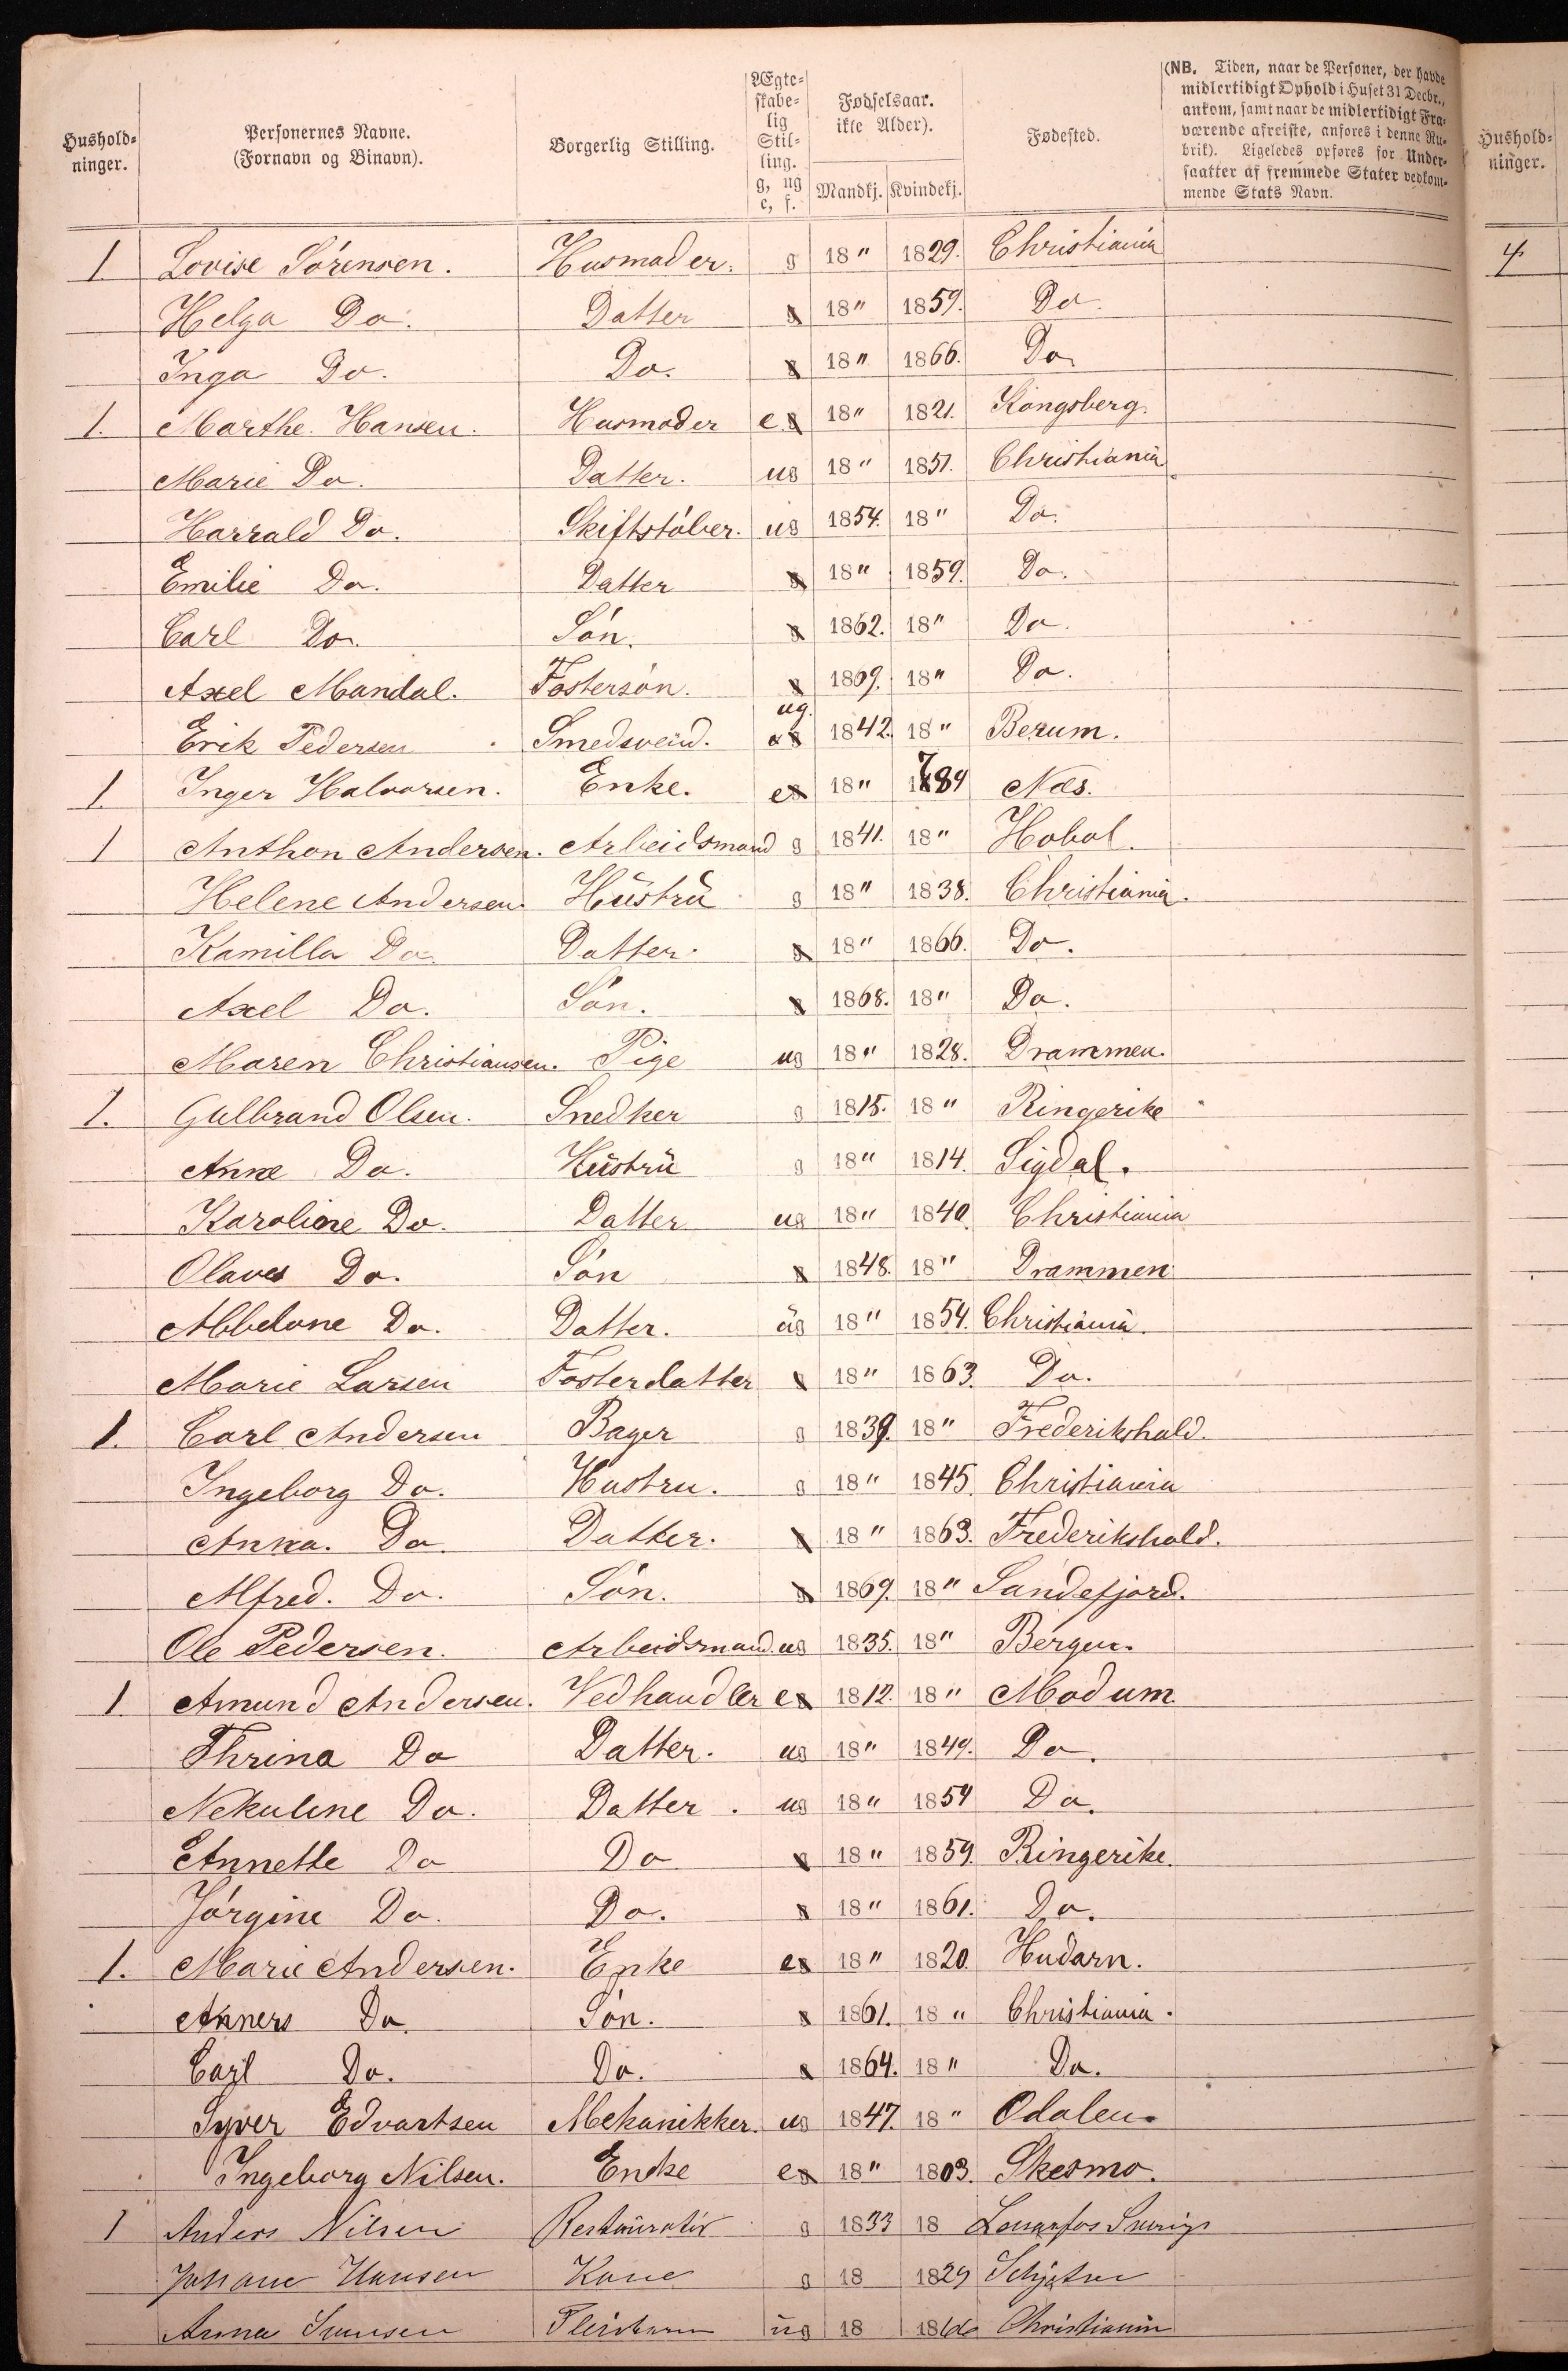 Hushold-
ninger.
Personernes Navne.
(Fornavn og Binavn).
Borgerlig Stilling.
Ægte-
skabe-
lig
Stil-
ling.
g, ug
e, f.
Fødselsaar.
ikke Alder).
Mandkj. Kvindekj.
Fødested.
(NB. Tiden, naar de Personer, der havde
midlertidigt Ophold i Huset 31 Decbr.,
ankom, samt naar de midlertidigt Fra-
værende afreiste, anføres i denne Ru-
brik). Ligeledes opføres for Under-
saatter af fremmede Stater vedkom-
mende Stats Navn.
Hushold-
ninger.
1 Lovise Sørensen. Husmoder. g 18" 1829. Christiania 4
Helga Do. Datter g 18" 1859. Do.
Inga Do. Do. g 18" 1866. Do.
1. Marthe Hansen. Husmoder e g 18" 1821. Kongsberg.
Marie Do. Datter. ug 18" 1851. Christiania
Harrald Do. Skiftstøber. ug 1854. 18" Do.
Emilie Do. Datter g 18" 1859. Do.
Carl Do. Søn. g 1862. 18" Do.
Axel Mandal. Fostersøn. g 1869. 18" Do.
Erik Pedersen Smedsvend. ug. 1842. 18" Berum.
1. Inger Halvorsen. Enke. e g 18" 1789 Næs.
1 Anthon Andersen. Arbeidsmand g 1841. 18" Hobøl.
Helene Andersen. Hustru g 18" 1838. Christiania.
Kamilla Do. Datter. g 18" 1866. Do.
Axel Do. Søn. g 1868. 18" Do.
Maren Christiansen. Pige ug 18" 1828. Drammen.
1. Gulbrand Olsen. Snedker g 1815. 18" Ringerike
Anne Do. Hustru g 18" 1814. Sigdal.
Karoline Do. Datter ug 18" 1840. Christiania
Olaves Do. Søn g 1848. 18" Drammen
Abbelone Do. Datter. ug 18" 1854. Christiania.
Marie Larsen Fosterdatter g 18" 1863. Do.
1. Carl Andersen Bager g 1839. 18" Frederikshald.
Ingeborg Do. Hustru. g 18" 1845. Christiania
Anna. Do. Datter. g 18" 1863. Frederikshald.
Alfred. Do. Søn. g 1869. 18" Sandefjord.
Ole Pedersen. Arbeidsmand. ug 1835. 18" Bergen.
1. Amund Andersen. Vedhandler e g 1812. 18" Modum.
Thrina Do Datter. ug 18" 1849. Do.
Nekuline Do. Datter. ug 18" 1854 Do.
Annette Do Do g 18" 1859. Ringerike.
Jørgine Do. Do. g 18" 1861. Do.
1. Marie Andersen. Enke e g 18" 1820. Hudarn.
Anners Do. Søn. g 1861. 18" Christiania.
Carl Do. Do. g 1864. 18" Do.
Syver Edvartsen Mekanikker. ug 1847. 18" Odalen.
Ingeborg Nilsen. Encke e g 18" 1803. Skesmo.
1 Anders Nilsen Restauratør g 1833 18
Hansen Kone g 18 1829
Anna ug 18 Christiania